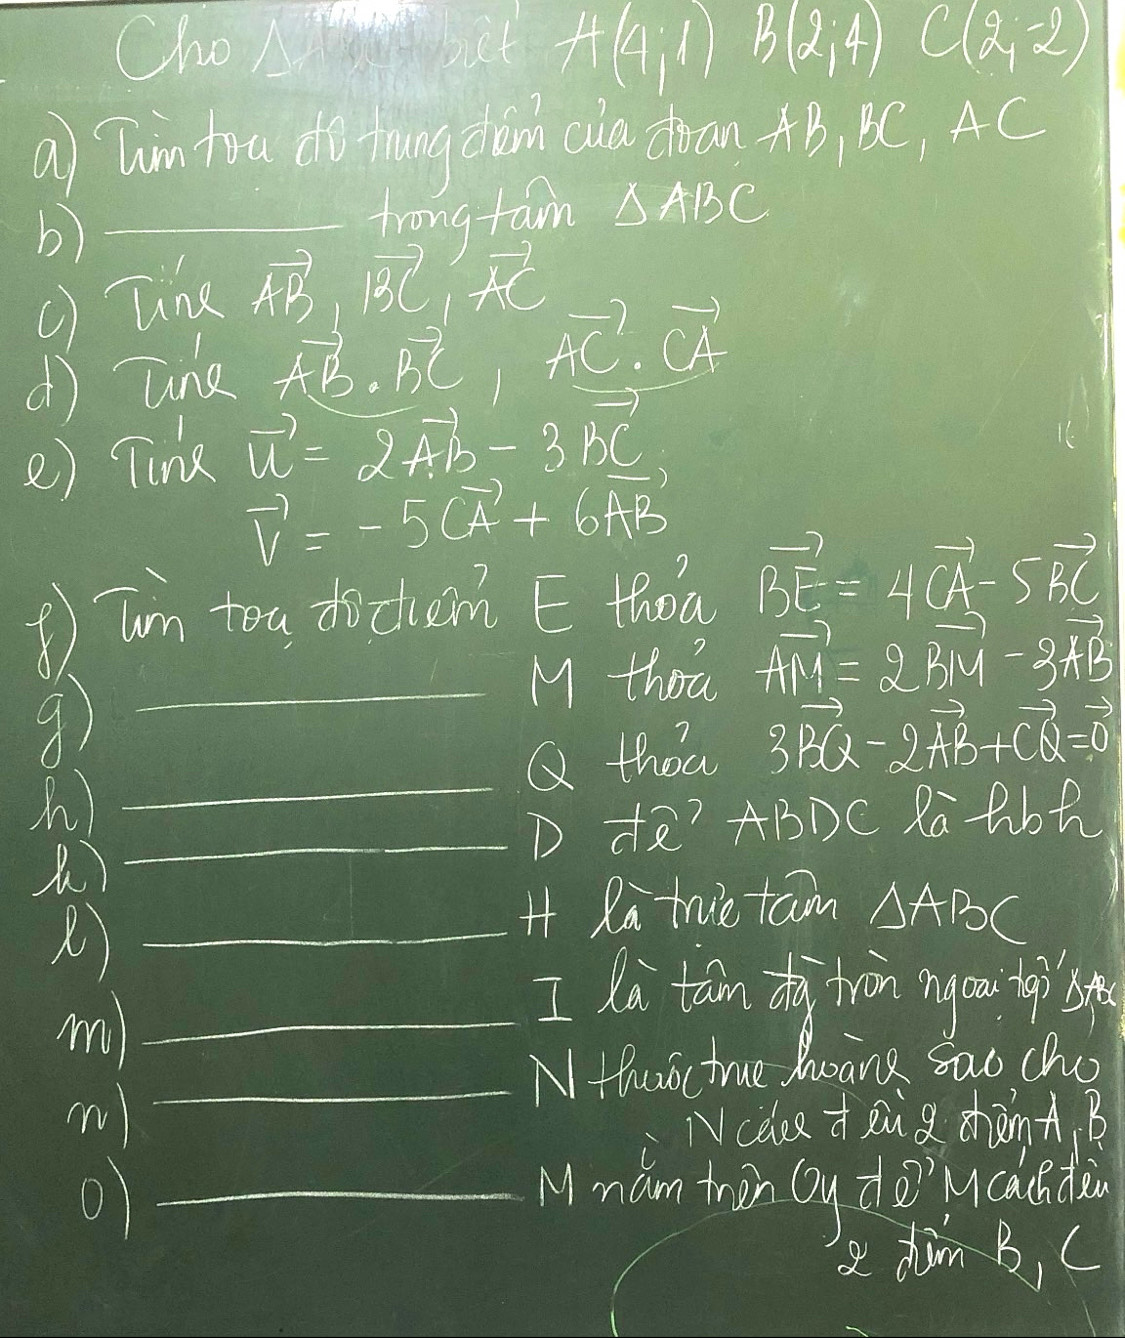 Cho Δ biết A(4;1) B(2;4) C(2;-2)
a) Tìm toạ độ trung điểm của đoạn AB, BC, AC
b) ______ trọng tâm ΔABC
c) Tính AB→, BC→, AC→
d) Tính AB→ . BC→, AC→ . CA→
e) Tính u→ = 2AB→ - 3BC→,
v→ = -5CA→ + 6AB→
f) Tìm toạ độ điểm E thỏa BE→ = 4CA→ - 5BC→
g) ______ M thỏa AM→ = 2BM→ - 3AB→
h) ______ Q thỏa 3BQ→ - 2AB→ + CQ→ = 0→
k) ______ D để ABDC là hbh
l) ______ H là trực tâm ΔABC
m) ______ I là tâm đg tròn ngoại tiếp ΔABC
n) ______ N thuộc trục hoành sao cho
N cách đều 2 điểm A, B
o) ______ M nằm trên Oy để M cách đều
2 điểm B, C